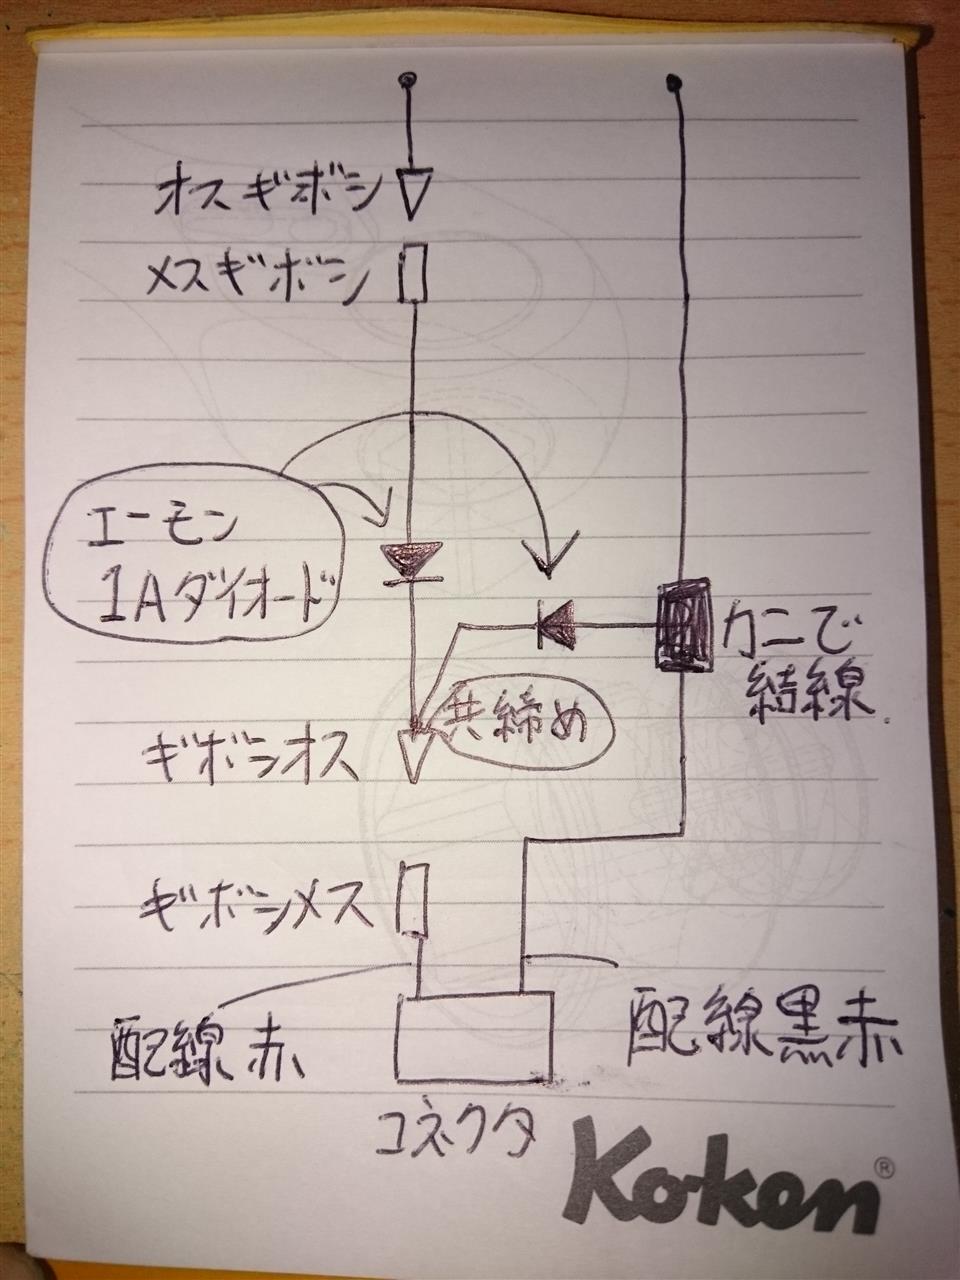 オスギボシ
メスギボシ
エーモン
1Aダイオード
カニで
結線
共締め
ギボシオス
ギボシメス
配線赤
配線黒赤
コネクタ
Ko-ken®